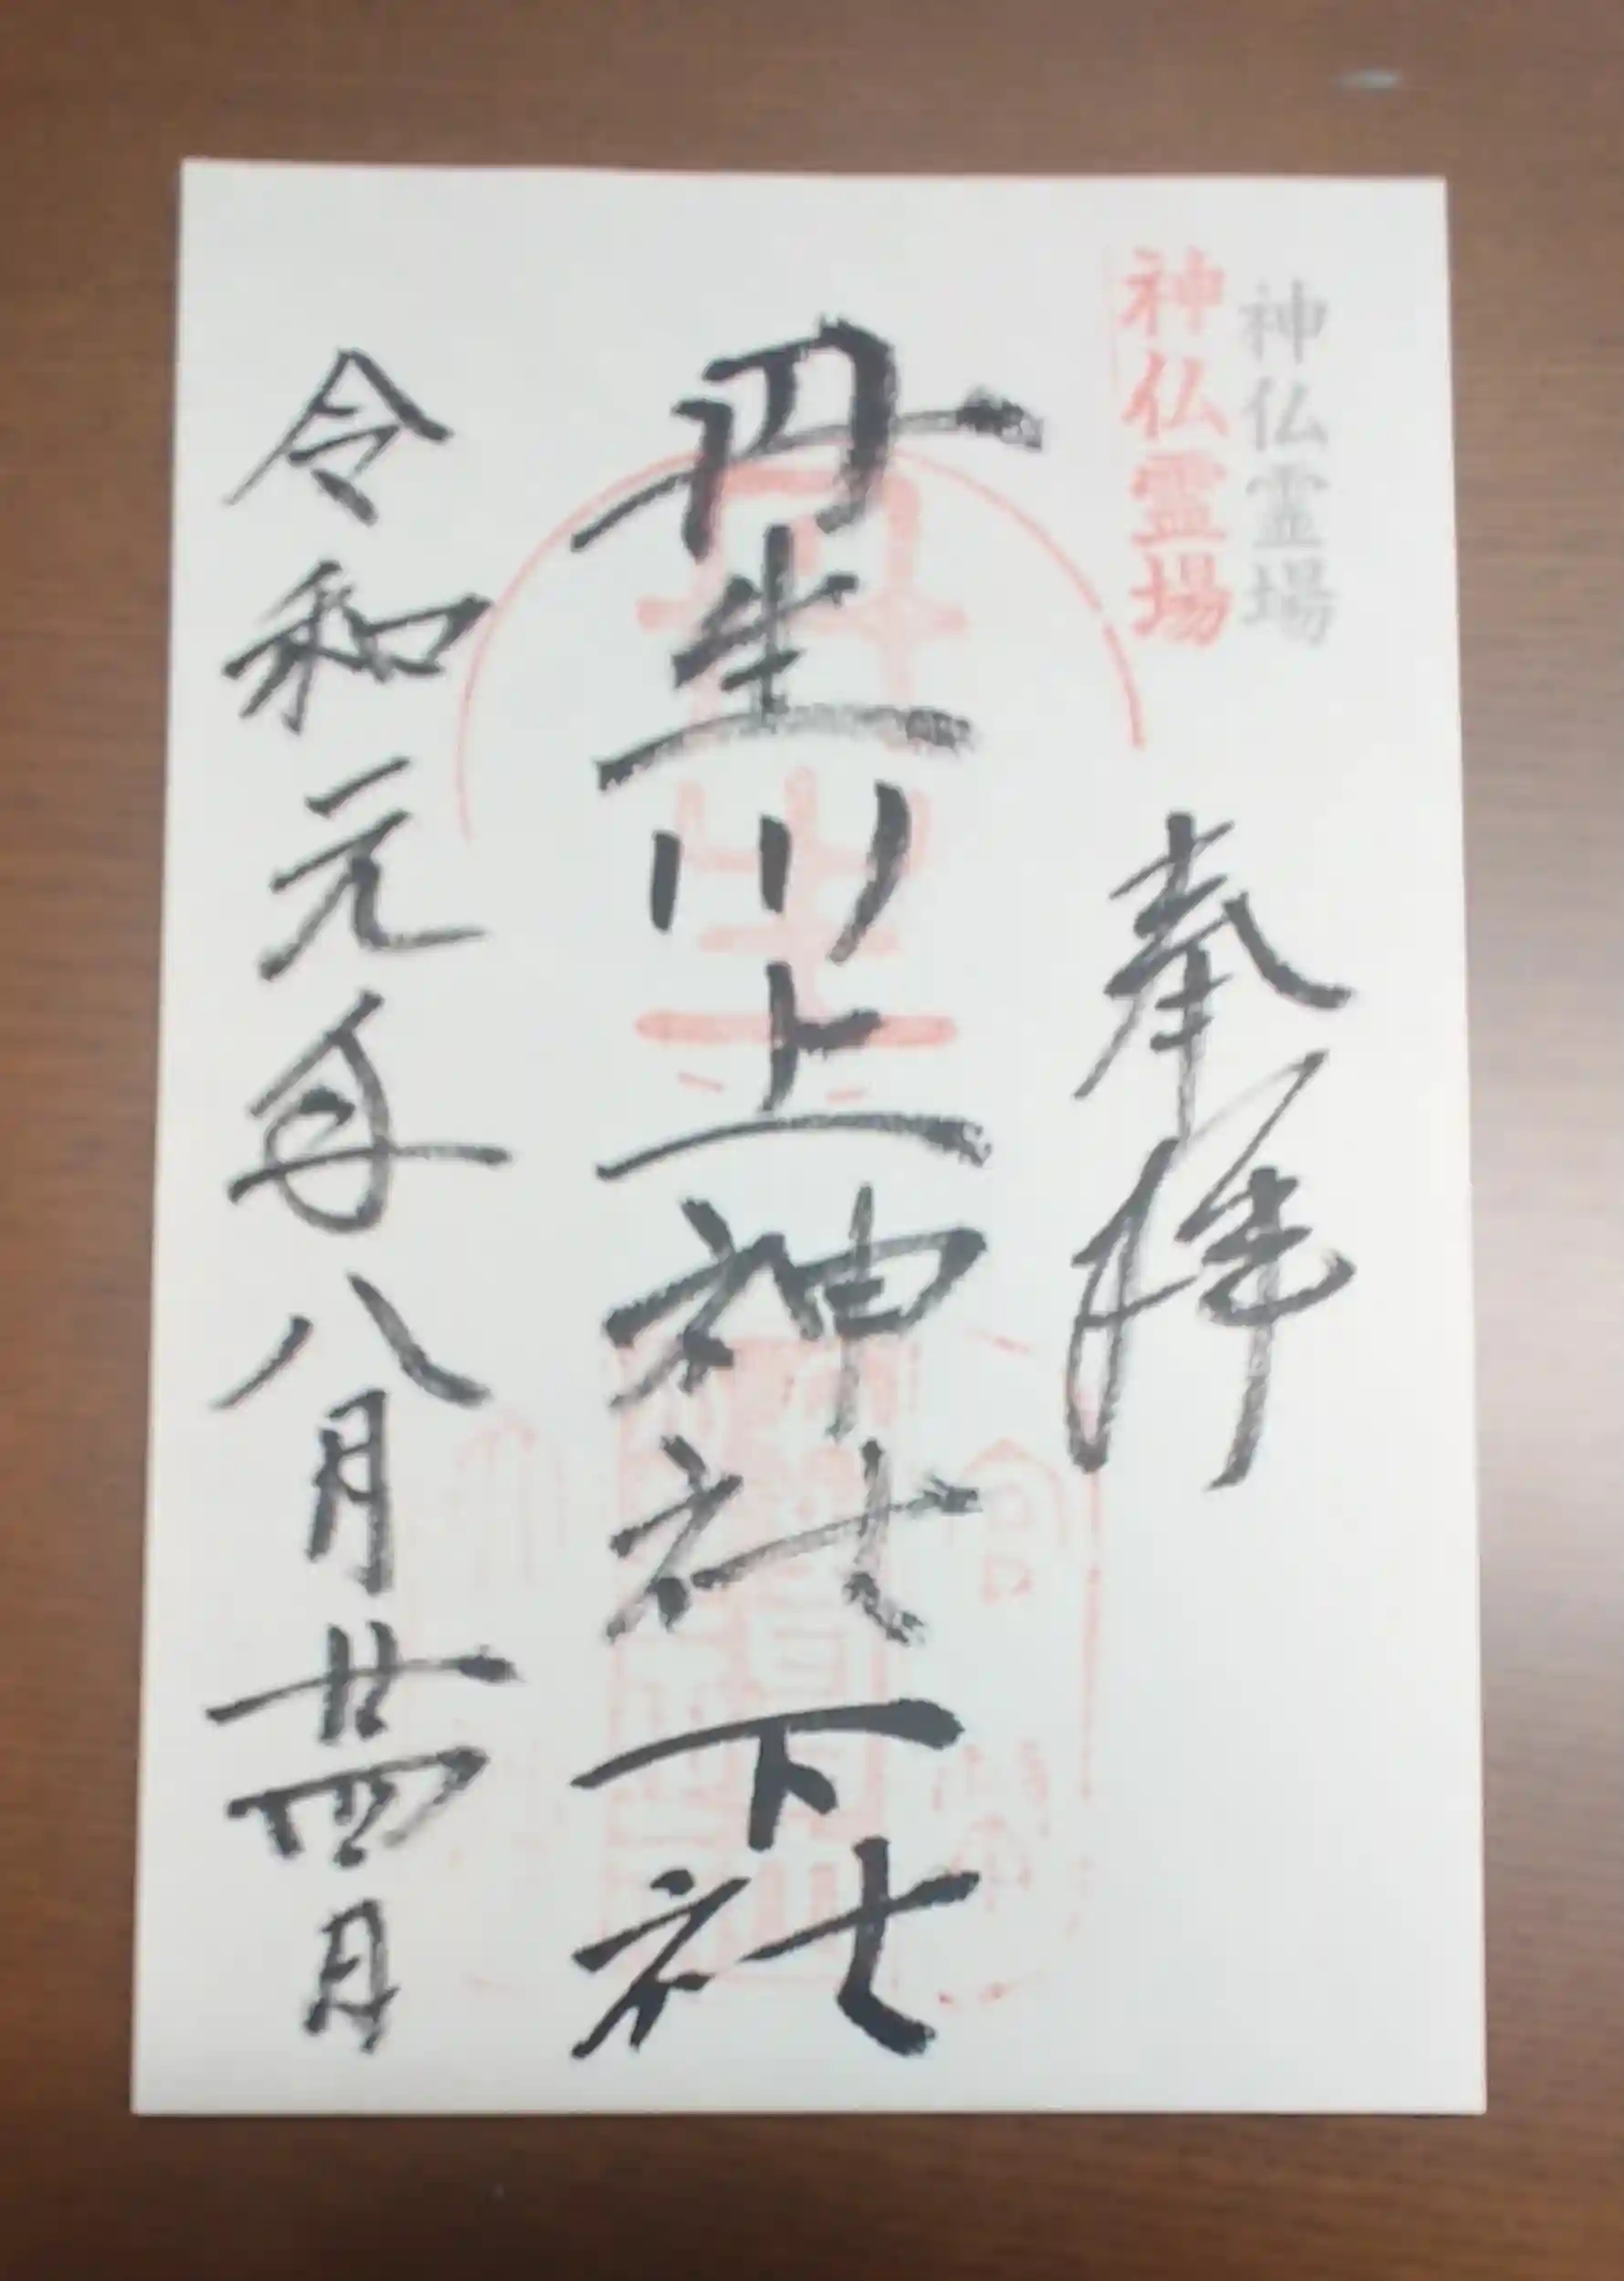 神仏霊場
神仏霊場
奉拝
丹生川上神社下社
令和元年八月廿四日